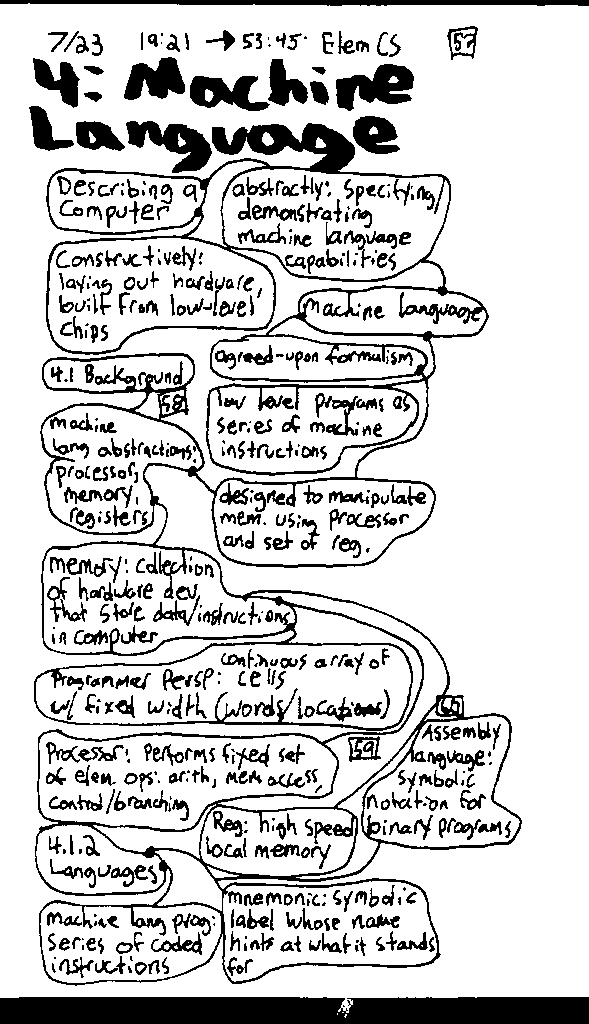 7/23 19:21 → 53:45 Elem CS 57
4: Machine
Language
Describing a
Computer
abstractly: specifying/
demonstrating
machine language
capabilities
Constructively:
laying out hardware,
built from low-level
chips
machine language
agreed-upon formalism
4.1 Background
58
low level programs as
series of machine
instructions
machine
lang abstractions:
processor,
memory,
registers
designed to manipulate
mem. using processor
and set of reg.
memory: collection
of hardware dev.
that store data/instructions
in computer
Programmer Persp: continuous array of
cells
w/ fixed width (words/locations)
60
Assembly
language:
symbolic
notation for
binary programs
Processor: Performs fixed set
of elem. ops: arith, mem access,
control/branching
59
Reg: high speed
local memory
4.1.2
Languages
machine lang prog:
series of coded
instructions
mnemonic: symbolic
label whose name
hints at what it stands
for